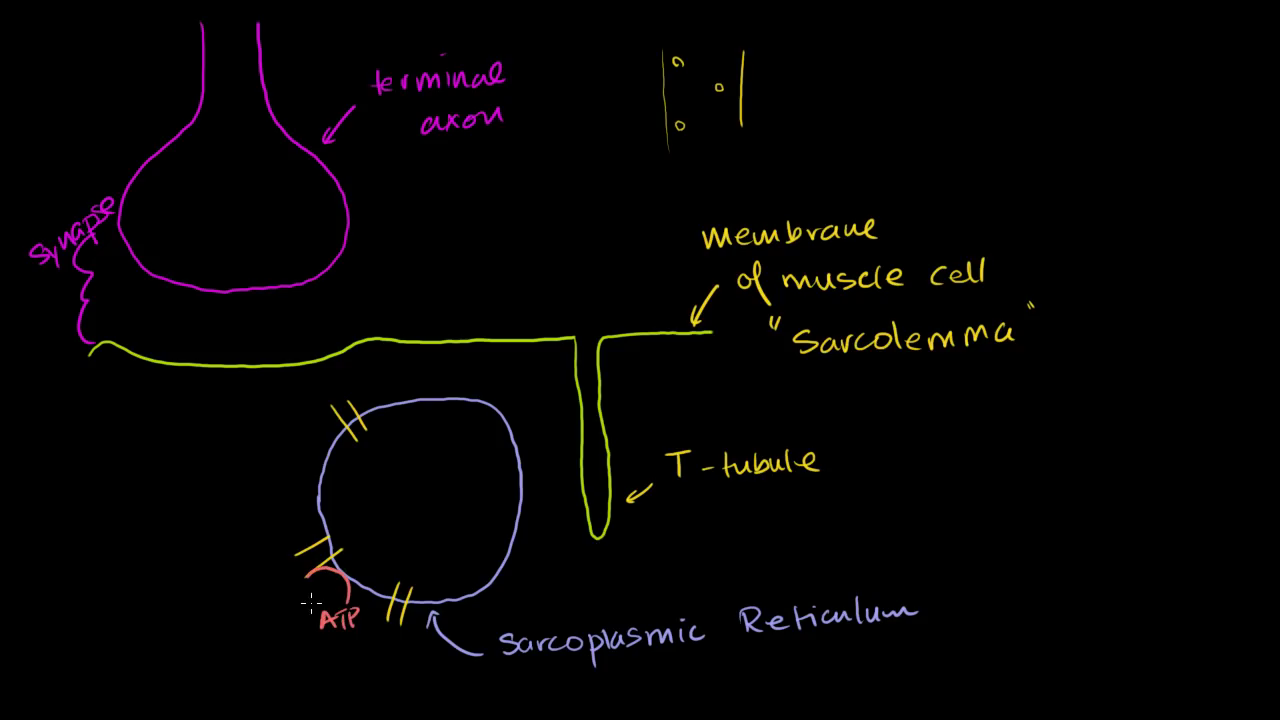 terminal
axon
synapse
membrane
of muscle cell
"Sarcolemma"
T-tubule
ATP
Sarcoplasmic Reticulum